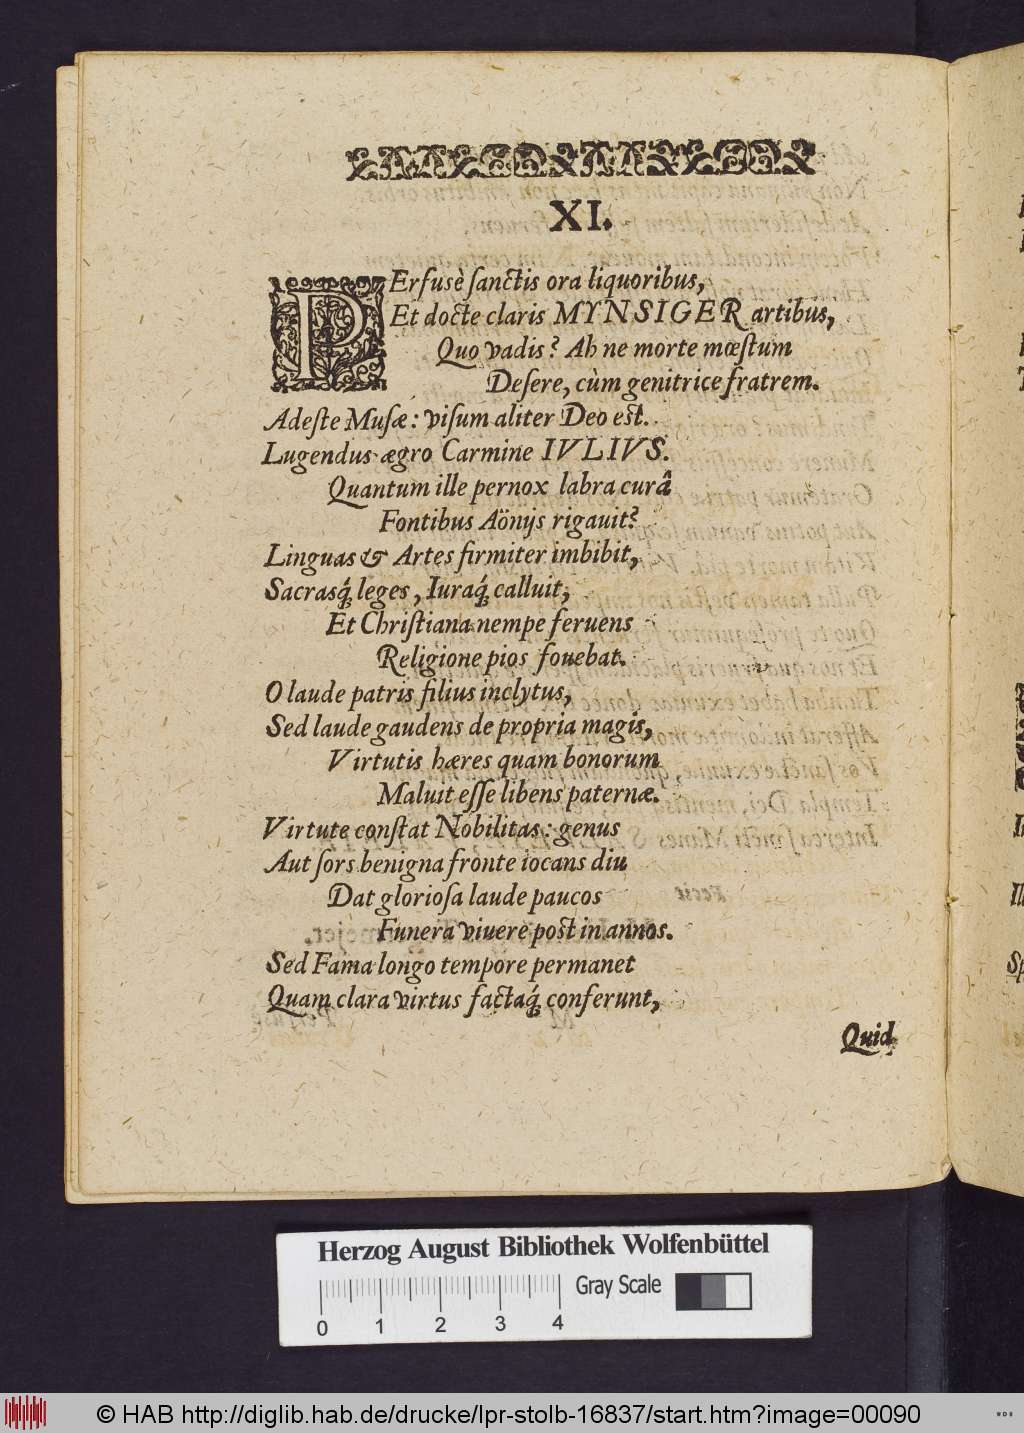 XI.
PErfusè ſanctis ora liquoribus,
Et docte claris MYNSIGER artibus,
Quo vadis? Ah ne morte mœſtum
Deſere, cùm genitrice fratrem.
Adeſte Muſæ: viſum aliter Deo est.
Lugendus ægro Carmine IVLIVS.
Quantum ille pernox labra curâ
Fontibus Aönijs rigauit?
Linguas & Artes firmiter imbibit,
Sacrasq́; leges, Iuraq́; calluit,
Et Chriſtiana nempe feruens
Religione pios fouebat.
O laude patris filius inclytus,
Sed laude gaudens de propria magis,
Virtutis hæres quam bonorum
Maluit eſſe libens paternæ.
Virtute conſtat Nobilitas: genus
Aut ſors benigna fronte iocans diu
Dat glorioſa laude paucos
Funera viuere post in annos.
Sed Fama longo tempore permanet
Quam clara virtus factaq́; conferunt,
Quid
Herzog August Bibliothek Wolfenbüttel
Gray Scale
0 1 2 3 4
© HAB http://diglib.hab.de/drucke/lpr-stolb-16837/start.htm?image=00090